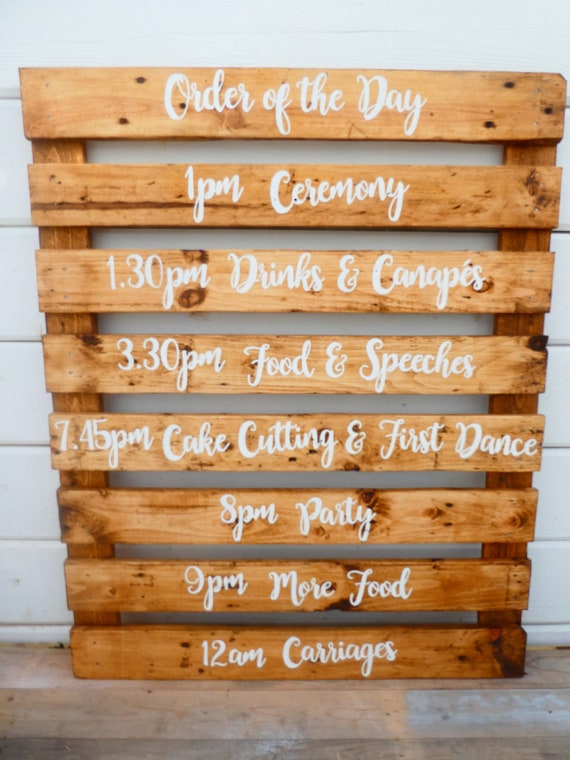 Order of the Day
1pm Ceremony
1.30pm Drinks & Canapés
3.30pm Food & Speeches
7.45pm Cake Cutting & First Dance
8pm Party
9pm More Food
12am Carriages